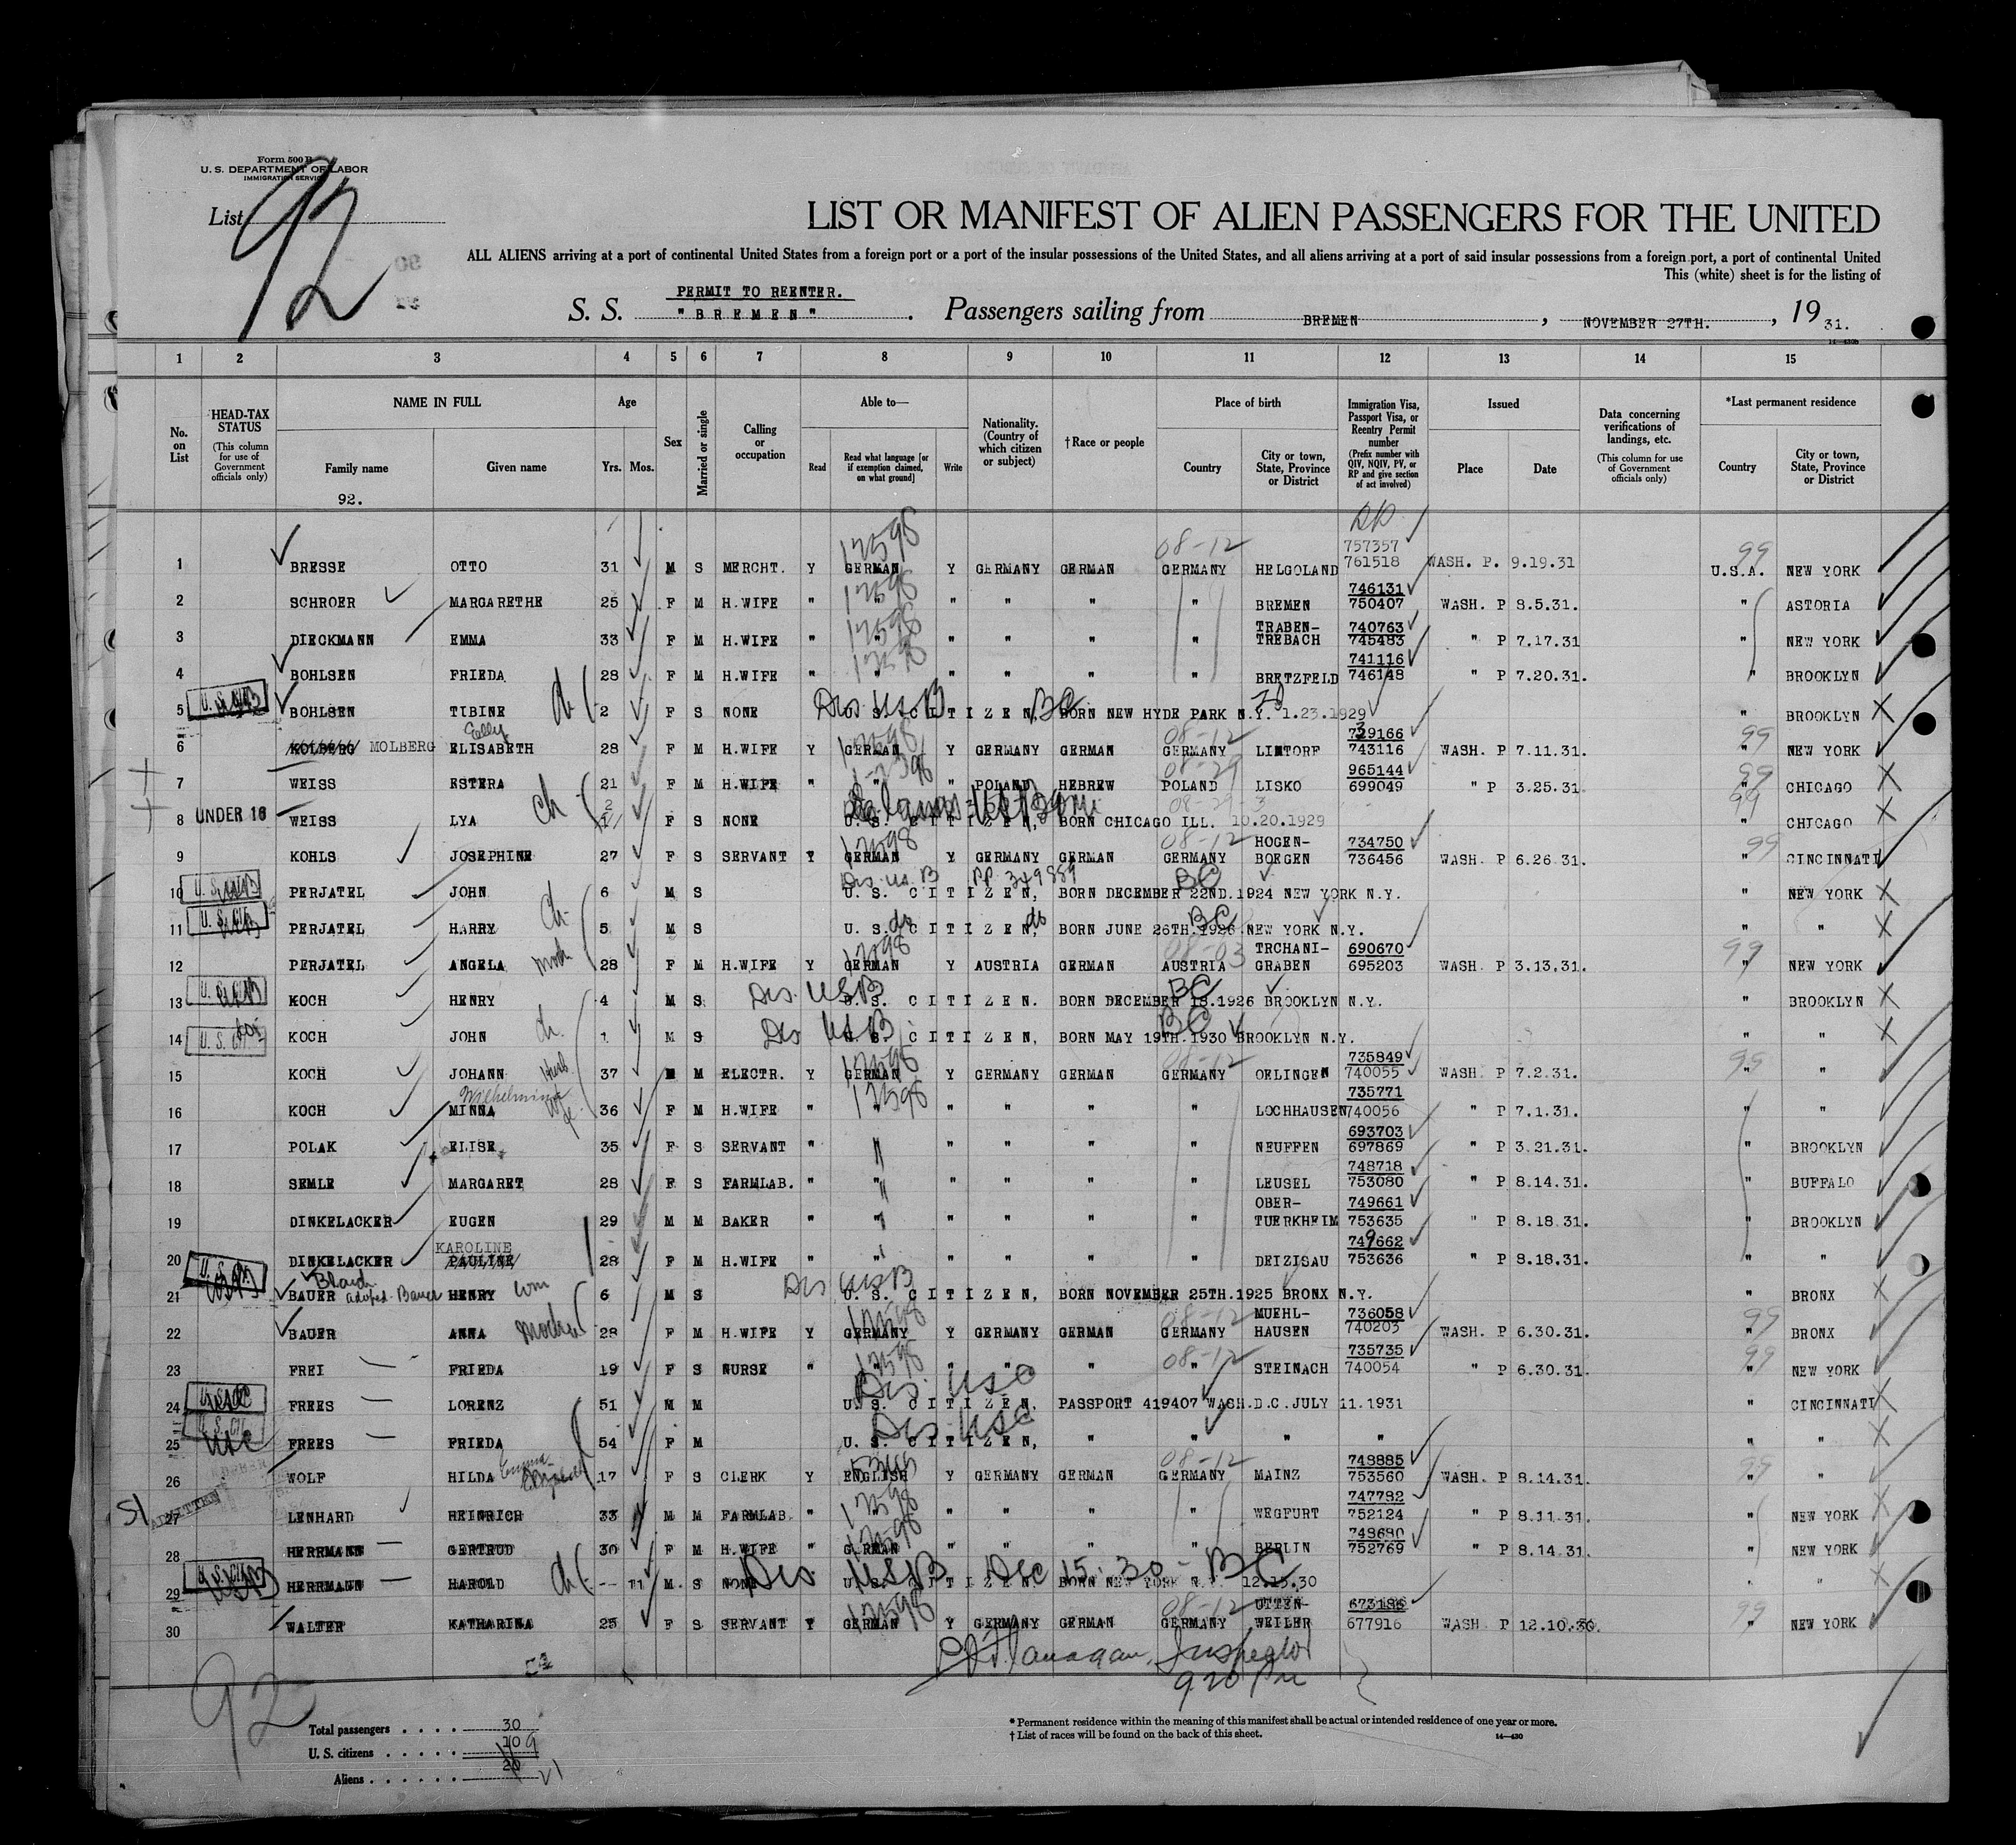 Form 500 B
U. S. DEPARTMENT OF LABOR
IMMIGRATION SERVICE
List 92
LIST OR MANIFEST OF ALIEN PASSENGERS FOR THE UNITED
ALL ALIENS arriving at a port of continental United States from a foreign port or a port of the insular possessions of the United States, and all aliens arriving at a port of said insular possessions from a foreign port, a port of continental United
This (white) sheet is for the listing of
PERMIT TO REENTER.
S. S. "BREMEN". Passengers sailing from BREMEN, NOVEMBER 27TH., 19 31.
14—430b
1 2 3 4 5 6 7 8 9 10 11 12 13 14 15
No. on List
HEAD-TAX STATUS (This column for use of Government officials only)
NAME IN FULL Family name Given name
92.
Age Yrs. Mos.
Sex
Married or single
Calling or occupation
Able to— Read Read what language [or if exemption claimed, on what ground] Write
Nationality. (Country of which citizen or subject)
†Race or people
Place of birth Country City or town, State, Province or District
Immigration Visa, Passport Visa, or Reentry Permit number (Prefix number with QIV, NQIV, PV, or RP and give section of act involved)
Issued Place Date
Data concerning verifications of landings, etc. (This column for use of Government officials only)
*Last permanent residence Country City or town, State, Province or District
1 BRESSE OTTO 31 M S MERCHT. Y GERMAN Y GERMANY GERMAN 08-12 GERMANY HELGOLAND 757357 761518 WASH. P. 9.19.31 99 U.S.A. NEW YORK
2 SCHROER MARGARETHE 25 F M H.WIFE " " " " " " BREMEN 746131 750407 WASH. P 8.5.31. " ASTORIA
3 DIECKMANN EMMA 33 F M H.WIFE " " " " " " TRABEN-TREBACH 740763 745483 " P 7.17.31 " NEW YORK
4 BOHLSEN FRIEDA 28 F M H.WIFE " " " " " " BRETZFELD 741116 746148 " P 7.20.31. " BROOKLYN
5 BOHLSEN TIBINE ch 2 F S NONE U. S. CITIZEN, BC BORN NEW HYDE PARK N.Y. 1.23.1929 " BROOKLYN
6 KOLBERG MOLBERG Elly ELISABETH 28 F M H.WIFE Y GERMAN Y GERMANY GERMAN 08-12 GERMANY LINTORF 743116 WASH. P 7.11.31. 99 " NEW YORK
7 WEISS ESTERA 21 F M H.WIFE " " " POLAND HEBREW 08-29 POLAND LISKO 965144 699049 " P 3.25.31. 99 " CHICAGO
8 UNDER 16 WEISS LYA ch F S NONE U. S. CITIZEN, BORN CHICAGO ILL. 10.20.1929 99 " CHICAGO
9 KOHLS JOSEPHINE 27 F S SERVANT Y GERMAN Y GERMANY GERMAN 08-12 GERMANY HOGEN-BOEGEN 734750 736456 WASH. P 6.26.31. 99 " CINCINNATI
10 PERJATEL JOHN 6 M S U. S. CITIZEN, BC BORN DECEMBER 22ND.1924 NEW YORK N.Y. " NEW YORK
11 PERJATEL HARRY ch 5 M S do U. S. CITIZEN, do BC BORN JUNE 26TH.1926 NEW YORK N.Y. " "
12 PERJATEL ANGELA moth 28 F M H.WIFE Y GERMAN Y AUSTRIA GERMAN 08-03 AUSTRIA TRCHANI-GRABEN 690670 695203 WASH. P 3.13.31. 99 " NEW YORK
13 KOCH HENRY 4 M S Dis. USB U. S. CITIZEN. BC BORN DECEMBER 18.1926 BROOKLYN N.Y. " BROOKLYN
14 KOCH JOHN ch. 1 M S Dis USB U. S. CITIZEN, BC BORN MAY 19TH.1930 BROOKLYN N.Y. " "
15 KOCH JOHANN Husb 37 M M ELECTR. Y GERMAN Y GERMANY GERMAN 08-12 GERMANY OELINGEN 735849 740055 WASH. P 7.2.31. 99 " "
16 KOCH Wilhelmina MINNA 36 F M H.WIFE " " " " " " LOCHHAUSEN 735771 740056 " P 7.1.31. " "
17 POLAK ELISE 35 F S SERVANT " " " " " " NEUFFEN 693703 697869 " P 3.21.31. " BROOKLYN
18 SEMLE MARGARET 28 F S FARMLAB. " " " " " " LEUSEL 748718 753080 " P 8.14.31. " BUFFALO
19 DINKELACKER EUGEN 29 M M BAKER " " " " " " OBER-TUERKHEIM 749661 753635 " P 8.18.31. " BROOKLYN
20 DINKELACKER KAROLINE PAULINE 28 F M H.WIFE " " " " " " DEIZISAU 749662 753636 " P 8.18.31. " "
21 BAUER adopted Bauer HENRY 6 M S Dis USB U. S. CITIZEN, BORN NOVEMBER 25TH.1925 BRONX N.Y. " BRONX
22 BAUER ANNA Mother 28 F M H.WIFE Y GERMANY Y GERMANY GERMAN 08-12 GERMANY MUEHL-HAUSEN 736058 740203 WASH. P 6.30.31. 99 " BRONX
23 FREI FRIEDA 19 F S NURSE " " " " " 08-12 " STEINACH 735735 740054 " P 6.30.31. 99 " NEW YORK
24 FREES LORENZ 51 M M Dis. USC U. S. CITIZEN, PASSPORT 419407 WASH.D.C.JULY 11.1931 " CINCINNATI
25 FREES FRIEDA 54 F M Dis. USC U. S. CITIZEN, " " " " " "
26 WOLF HILDA 17 F S CLERK Y ENGLISH Y GERMANY GERMAN 08-12 GERMANY MAINZ 748885 753560 WASH. P 8.14.31. 99 " "
SI ADMITTED
27 LENHARD HEINRICH 33 M M FARMLAB. " " " " " " WEGFURT 747782 752124 " P 8.11.31. " NEW YORK
28 HERRMANN GERTRUD 30 F M H.WIFE " GERMAN " " " " BERLIN 748680 752769 " P 8.14.31. " NEW YORK
29 HERRMANN HAROLD ch -- 11 M. S NONE Dis USB Dec 15.30 - BC U. S. CITIZEN. BORN NEW YORK N.Y. 12.15.30 " "
30 WALTER KATHARINA 25 F S SERVANT Y GERMAN Y GERMANY GERMAN 08-12 GERMANY UTTEN-WEILER 673186 677916 WASH P 12.10.30. 99 " NEW YORK
Flanagan, Inspector
9 20 PM
92
Total passengers . . . . 30
U. S. citizens . . . . . 10 9
Aliens . . . . . . 20 21
* Permanent residence within the meaning of this manifest shall be actual or intended residence of one year or more.
† List of races will be found on the back of this sheet.
14—430